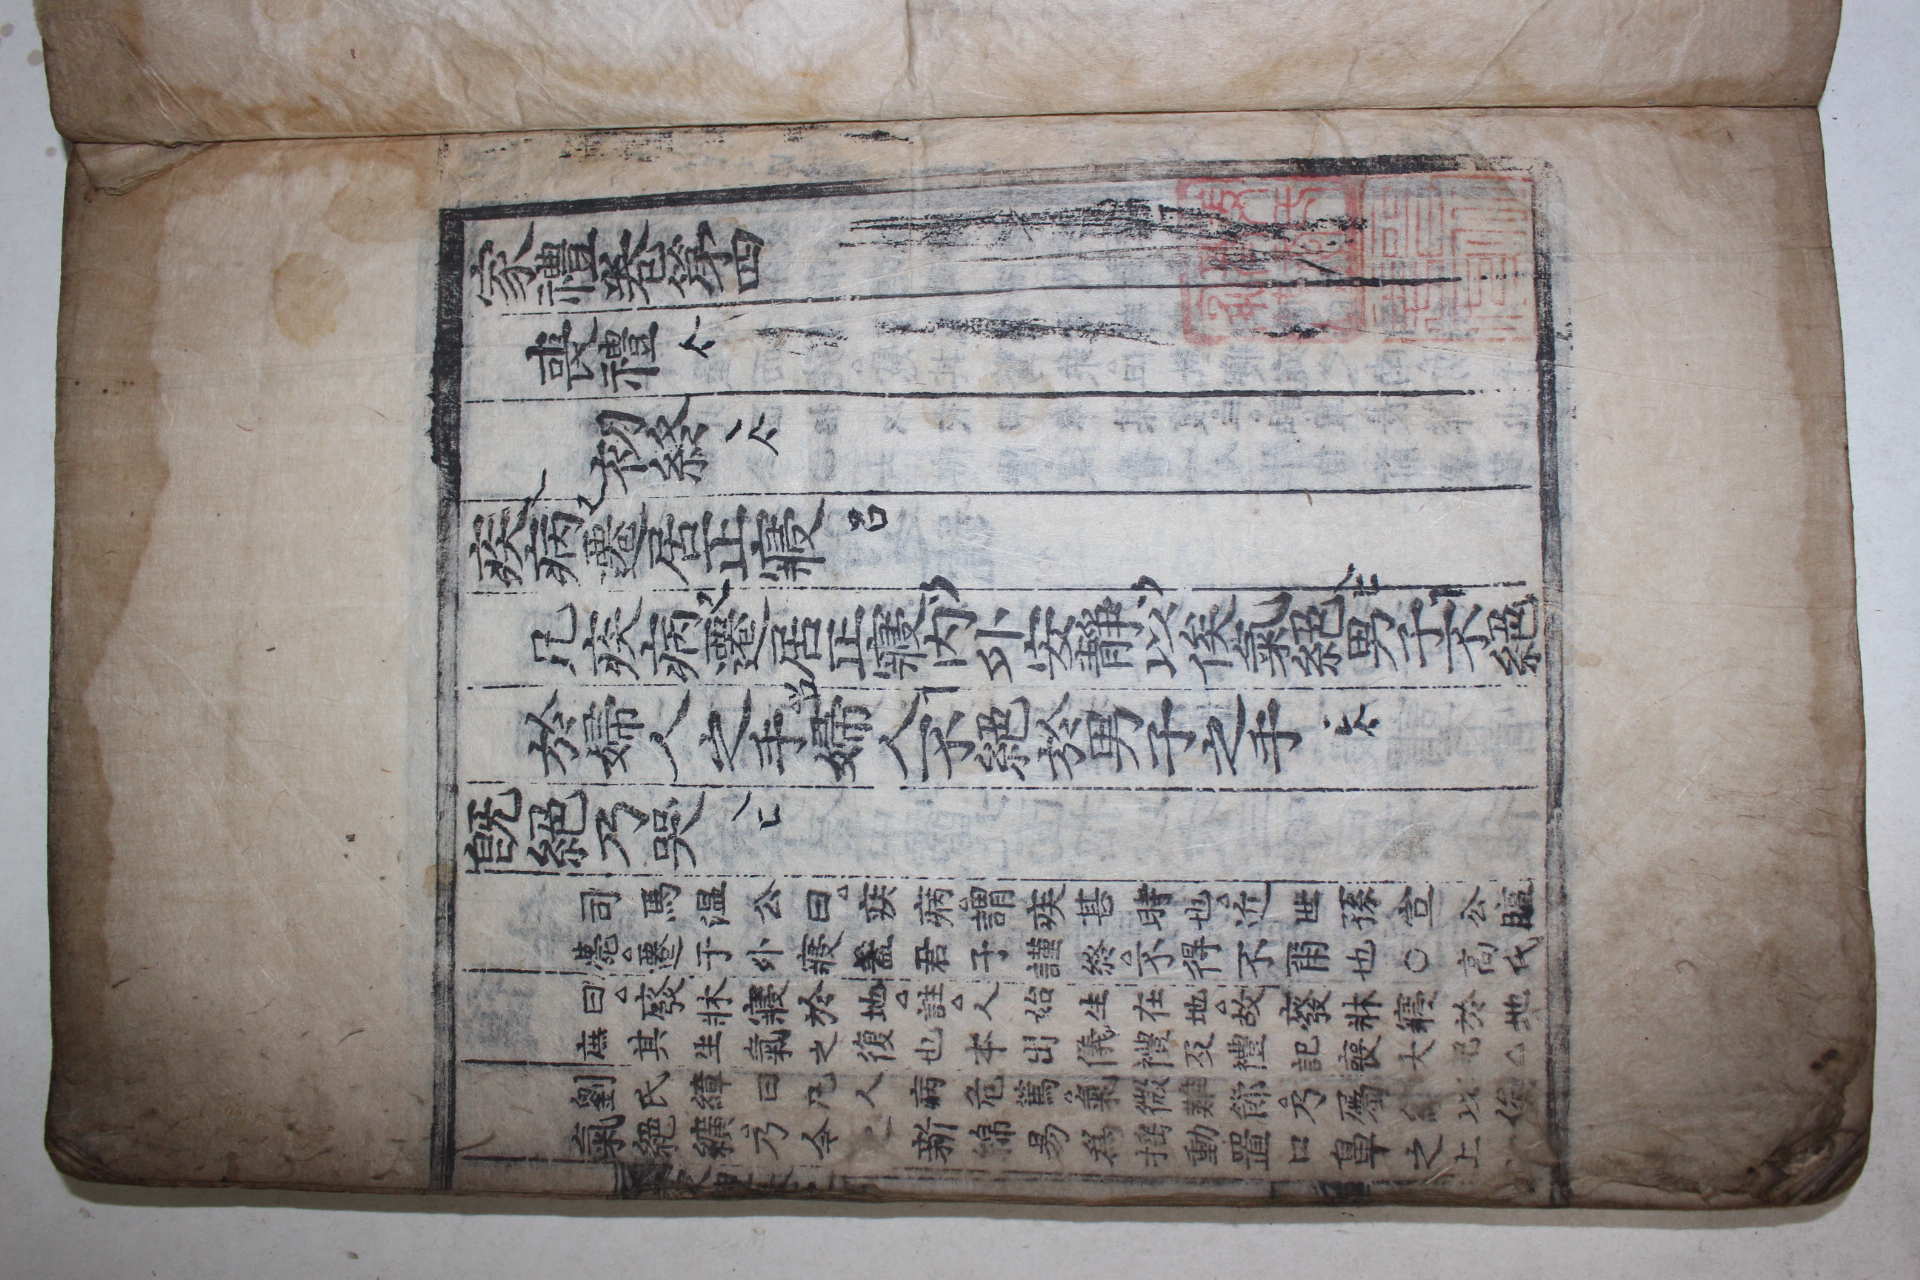 家禮卷第四
喪禮
初終
疾病遷居正寢
凡疾病遷居正寢內外安靜以俟氣絕男子不絕
於婦人之手婦人不絕於男子之手
旣絕乃哭
司馬溫公曰疾病謂疾甚時也近世孫宣公臨
薨遷于外寢蓋君子謹終不得不爾也○高氏
曰廢牀寢於地註人始生在地故廢牀寢於地
庶其生氣之復也本出儀禮及禮記喪大記
劉氏璋曰凡人病危篤氣微難節乃屬纊以俟
氣絕纊乃今之新綿易爲搖動置口鼻之上